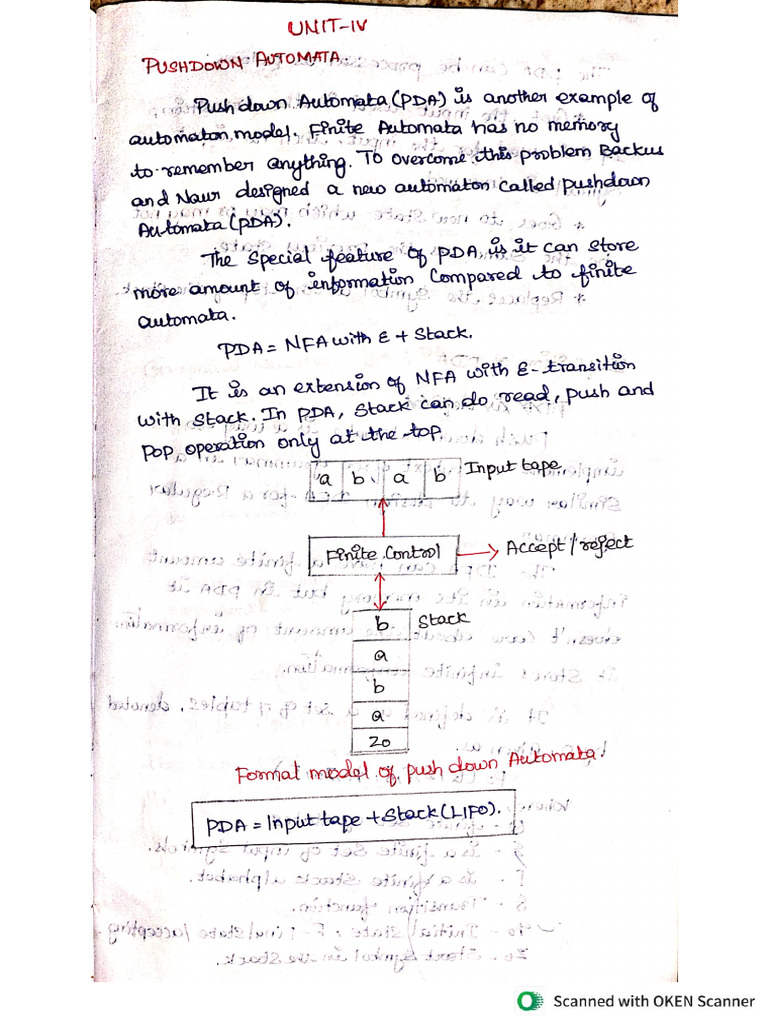 UNIT-IV
PUSHDOWN AUTOMATA.
Push down Automata (PDA) is another example of
automaton model. Finite Automata has no memory
to remember anything. To overcome this problem Backus
and Naur designed a new automaton called pushdown
Automata (PDA).
The Special feature of PDA is it can store
more amount of information compared to finite
automata.
PDA = NFA with ε + Stack.
It is an extension of NFA with ε-transition
with Stack. In PDA, Stack can do read, push and
pop operation only at the top.
a b a b Input tape
Finite Control → Accept / reject
b Stack
a
b
a
Z0
Formal model of push down Automata.
PDA = Input tape + Stack (LIFO).
Scanned with OKEN Scanner